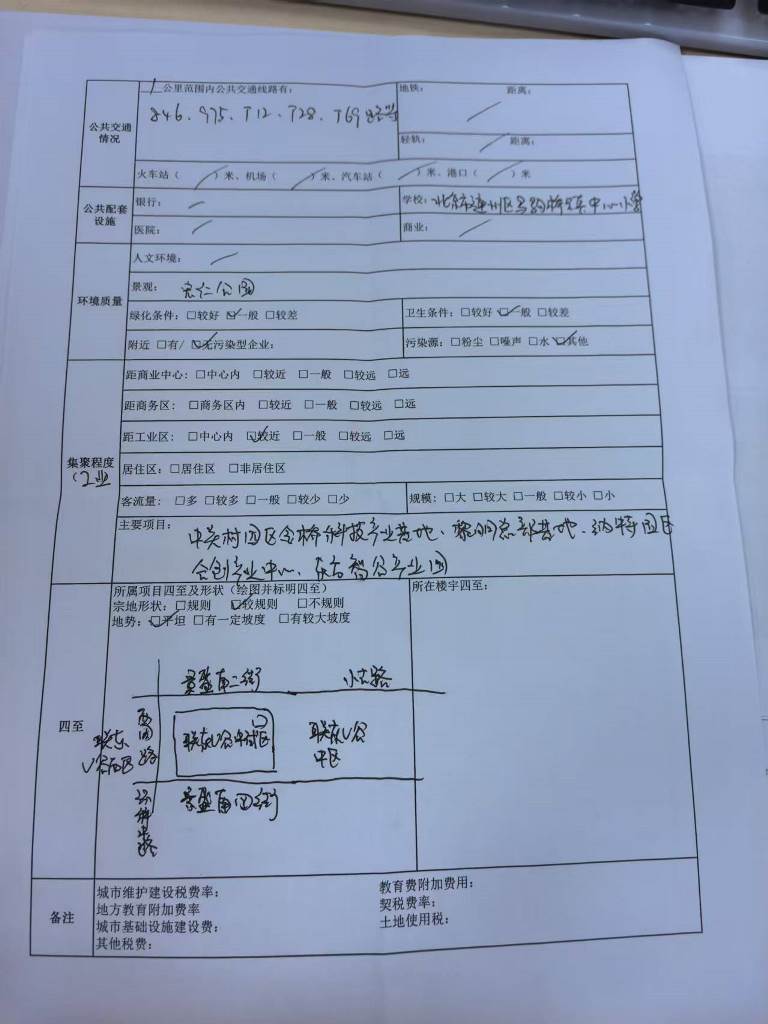 1公里范围内公共交通线路有:
地铁: 距离:
846、975、T12、T28、T69路等
公共交通情况
轻轨: 距离:
火车站( )米、机场( )米、汽车站( )米、港口( )米
公共配套设施
银行:
学校:北京市通州区马驹桥镇中心小学
医院:
商业:
环境质量
人文环境:
景观: 宏仁公园
绿化条件:□较好 ☑一般 □较差
卫生条件:□较好 ☑一般 □较差
附近 □有/ ☑无污染型企业:
污染源:□粉尘 □噪声 □水 ☑其他
集聚程度
(工业
距商业中心:□中心内 □较近 □一般 □较远 □远
距商务区: □商务区内 □较近 □一般 □较远 □远
距工业区: □中心内 ☑较近 □一般 □较远 □远
居住区:□居住区 □非居住区
客流量:□多 □较多 □一般 □较少 □少
规模:□大 □较大 □一般 □较小 □小
主要项目:
中关村园区金桥科技产业基地、总部基地、纳特园区
合创产业中心、东古智谷产业园
四至
所属项目四至及形状(绘图并标明四至)
所在楼宇四至:
宗地形状:□规则 ☑较规则 □不规则
地势:☑平坦 □有一定坡度 □有较大坡度
景盛南二街
路
联东U谷西区
联东U谷中试区
联东U谷中区
景盛南四街
备注
城市维护建设税费率:
教育费附加费用:
地方教育附加费率
契税费率:
城市基础设施建设费:
土地使用税:
其他税费: